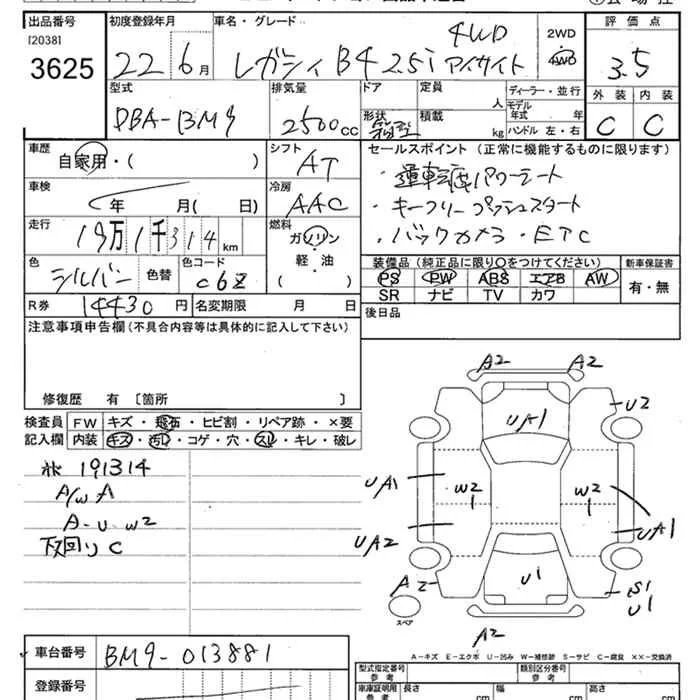 出品番号 初度登録年月 車名・グレード 評価点
[2038]
3625 22 6月 レガシィ B4 2.5i アイサイト 4WD 2WD 4WD 3.5
型式 排気量 ドア 定員 人 ディーラー・並行 外装 内装
モデル年式 年
DBA-BM9 2500cc 形状 箱型 積載 kg ハンドル 左・右 C C
車歴 自家用・( ) シフト AT セールスポイント (正常に機能するものに限ります)
・運転席パワーシート
車検 年 月(日) 冷房 AAC ・キーフリープッシュスタート
走行 19万1千314km 燃料 ガソリン ・バックカメラ・ETC
軽・油
( )
色 シルバー 色替 色コード C6Z 装備品 (純正品に限り○をつけてください) 新車保証書
PS PW ABS エアB AW 有・無
R券 14430円 名変期限 月 日 SR ナビ TV カワ
注意事項申告欄 (不具合内容等は具体的に記入して下さい) 後日品
修復歴 有 〔箇所 〕
検査員 FW キズ・飛石・ヒビ割・リペア跡・×要
記入欄 内装 キズ・汚レ・コゲ・穴・スレ・キレ・破レ
191314
A/W A
A-U W2
下回り C
A2 A2
UA1 U2
UA1 W2 1 W2 1
UA2 UA1
A2 U1 S1
U1
スペア
A2
A-キズ E-エクボ U-凹み W-補修跡 S-サビ C-腐食 ××-交換済
車台番号 BM9-013881
型式指定番号 参考 類別区分番号 参考
登録番号 車庫証明用 参考 長さ cm 幅 cm 高さ cm